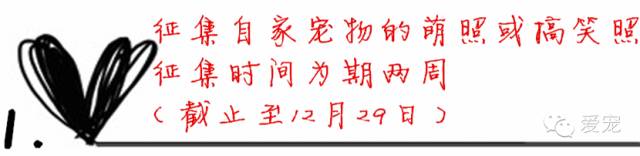 征集自家宠物的萌照或搞笑照
征集时间为期两周
(截止至12月29日)
1.
爱宠